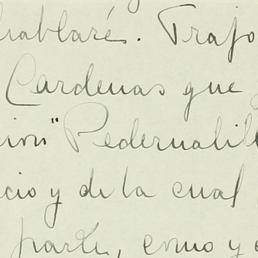 hablaré. Trajo
Cardenas que
cion "Pedernalil
cio y de la cual
parte, como y